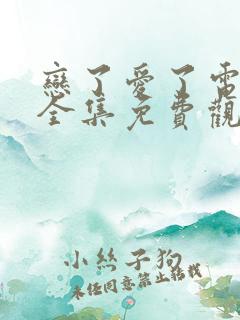 戀了愛了電
全集免費觀
小絲子狗
未經同意禁止轉載